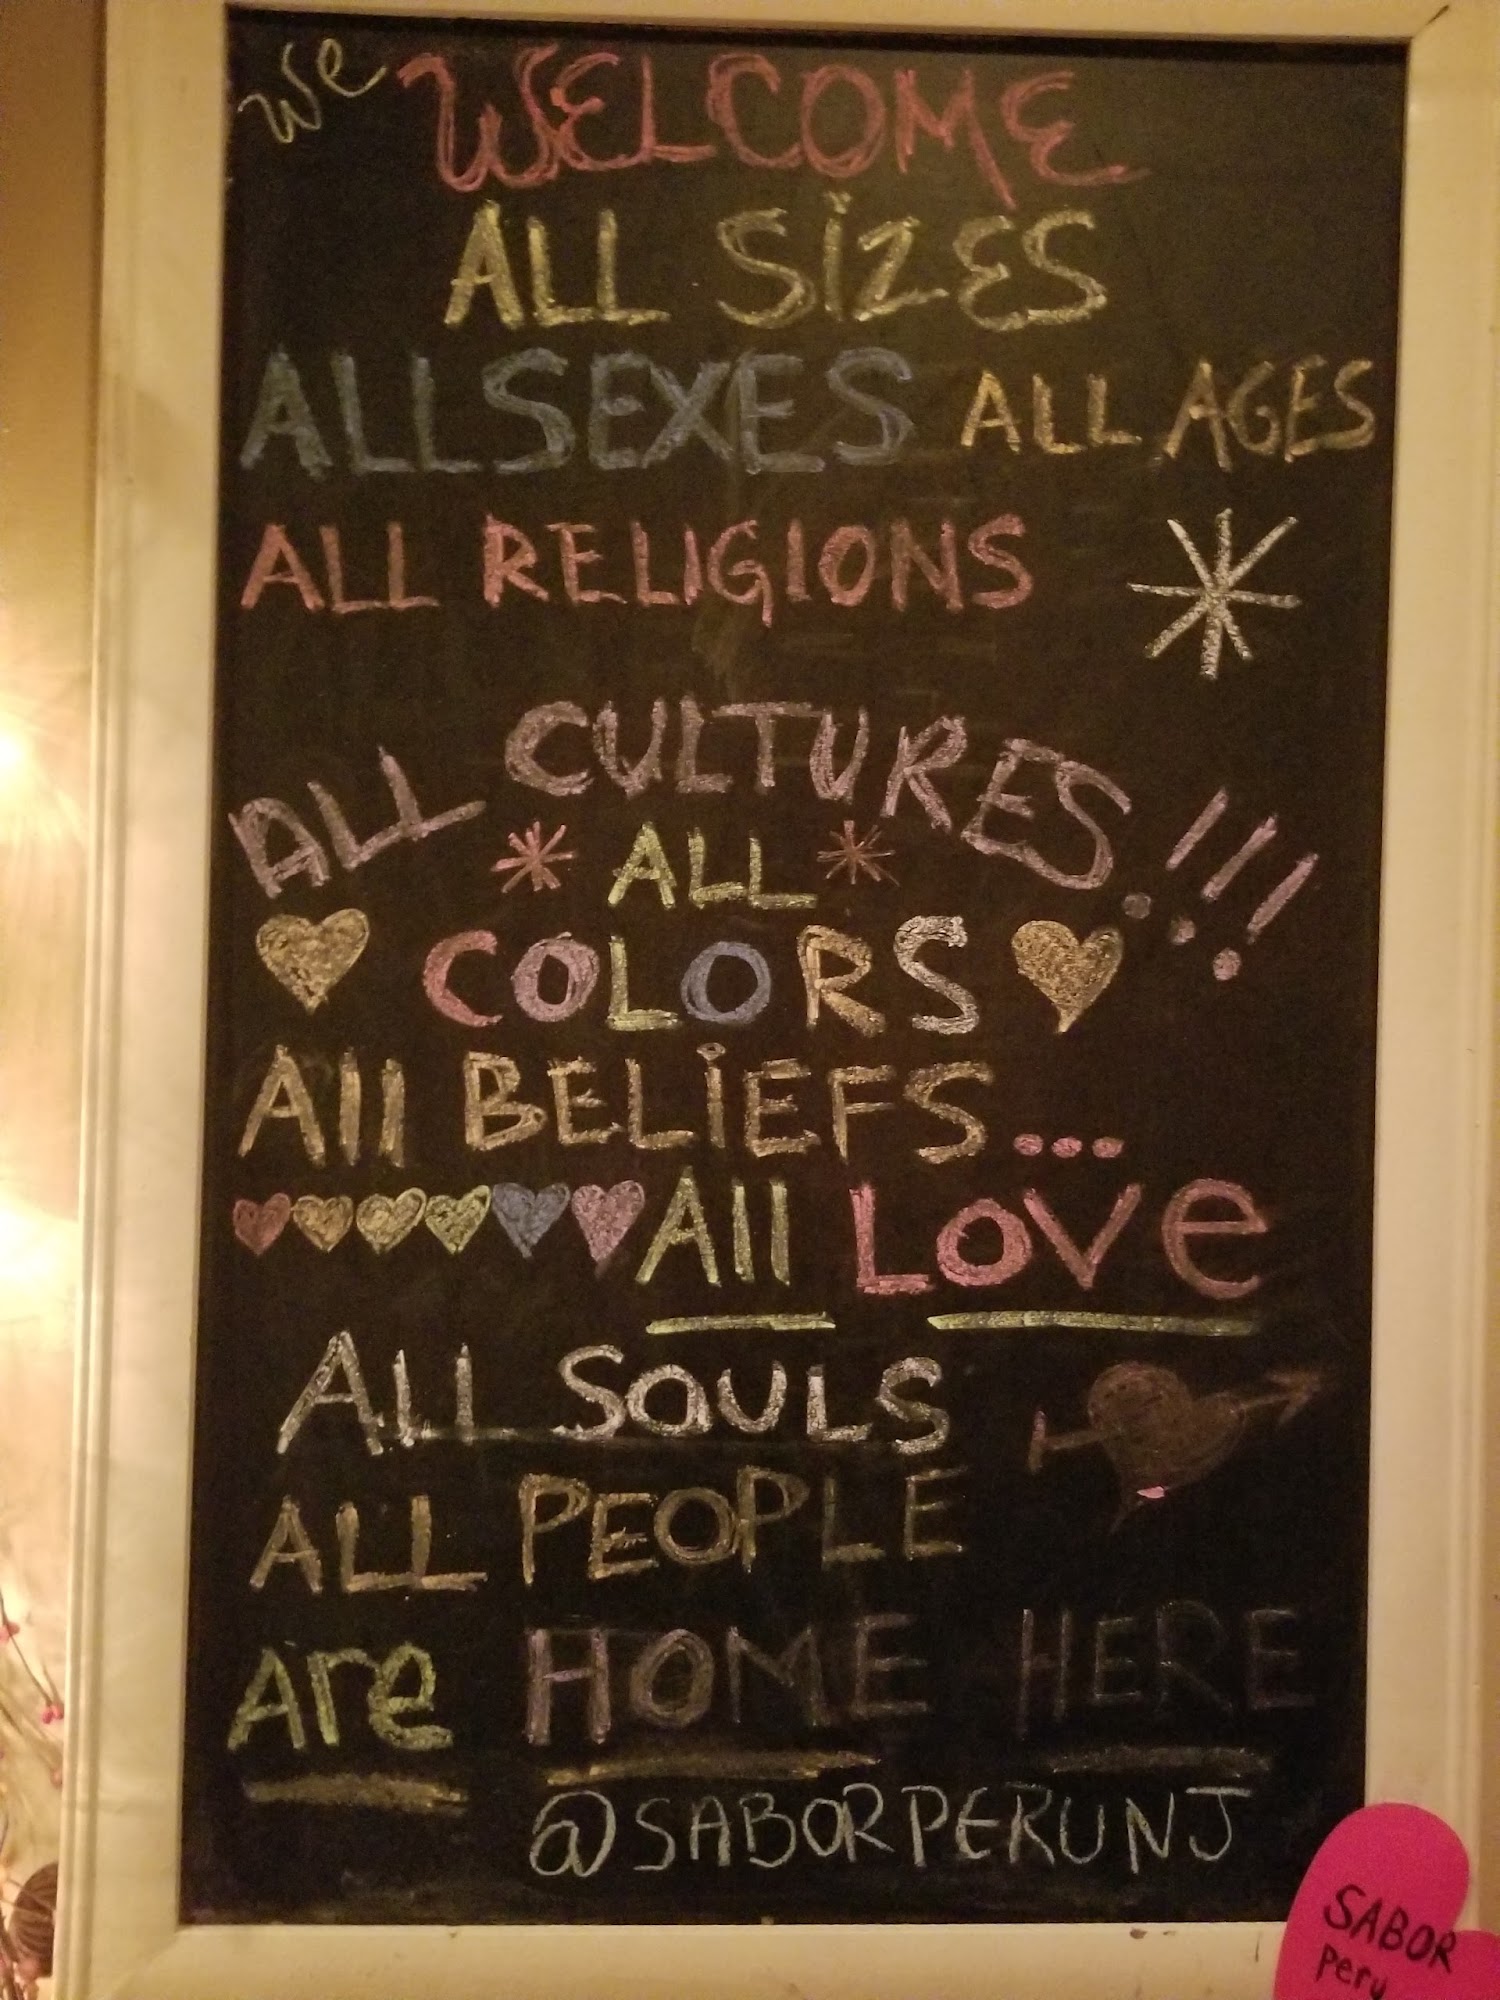 We WELCOME
ALL SiZES
ALL SEXES ALL AGES
ALL RELIGIONS
ALL CULTURES!!!
ALL
COLORS
All BELiEFS...
All Love
All SOULS
ALL PEOPLE
Are HOME HERE
@SABORPERUNJ
SABOR
Peru